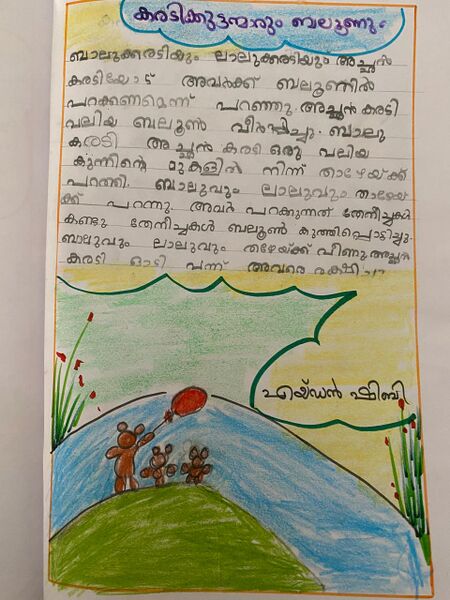 കരടിക്കുട്ടന്മാരും ബലൂണും
ബാലുക്കരടിയും ലാലുക്കരടിയും അച്ഛൻ
കരടിയോട് അവർക്ക് ബലൂണിൽ
പറക്കണമെന്ന് പറഞ്ഞു. അച്ഛൻ കരടി
വലിയ ബലൂൺ വീർപ്പിച്ചു. ബാലു
കരടി അച്ഛൻ കരടി ഒരു വലിയ
കുന്നിന്റെ മുകളിൽ നിന്ന് താഴേയ്ക്ക്
പറത്തി. ബാലുവും ലാലുവും താഴേയ
ക്ക് പറന്നു. അവർ പറക്കുന്നത് തേനീച്ചകൾ
കണ്ടു തേനീച്ചകൾ ബലൂൺ കുത്തിപ്പൊട്ടിച്ചു.
ബാലുവും ലാലുവും തഴേയ്ക്ക് വീണു. അച്ഛൻ
കരടി ഓടി വന്ന് അവരെ രക്ഷിച്ചു
എയ്ഡൻ ഷിബി